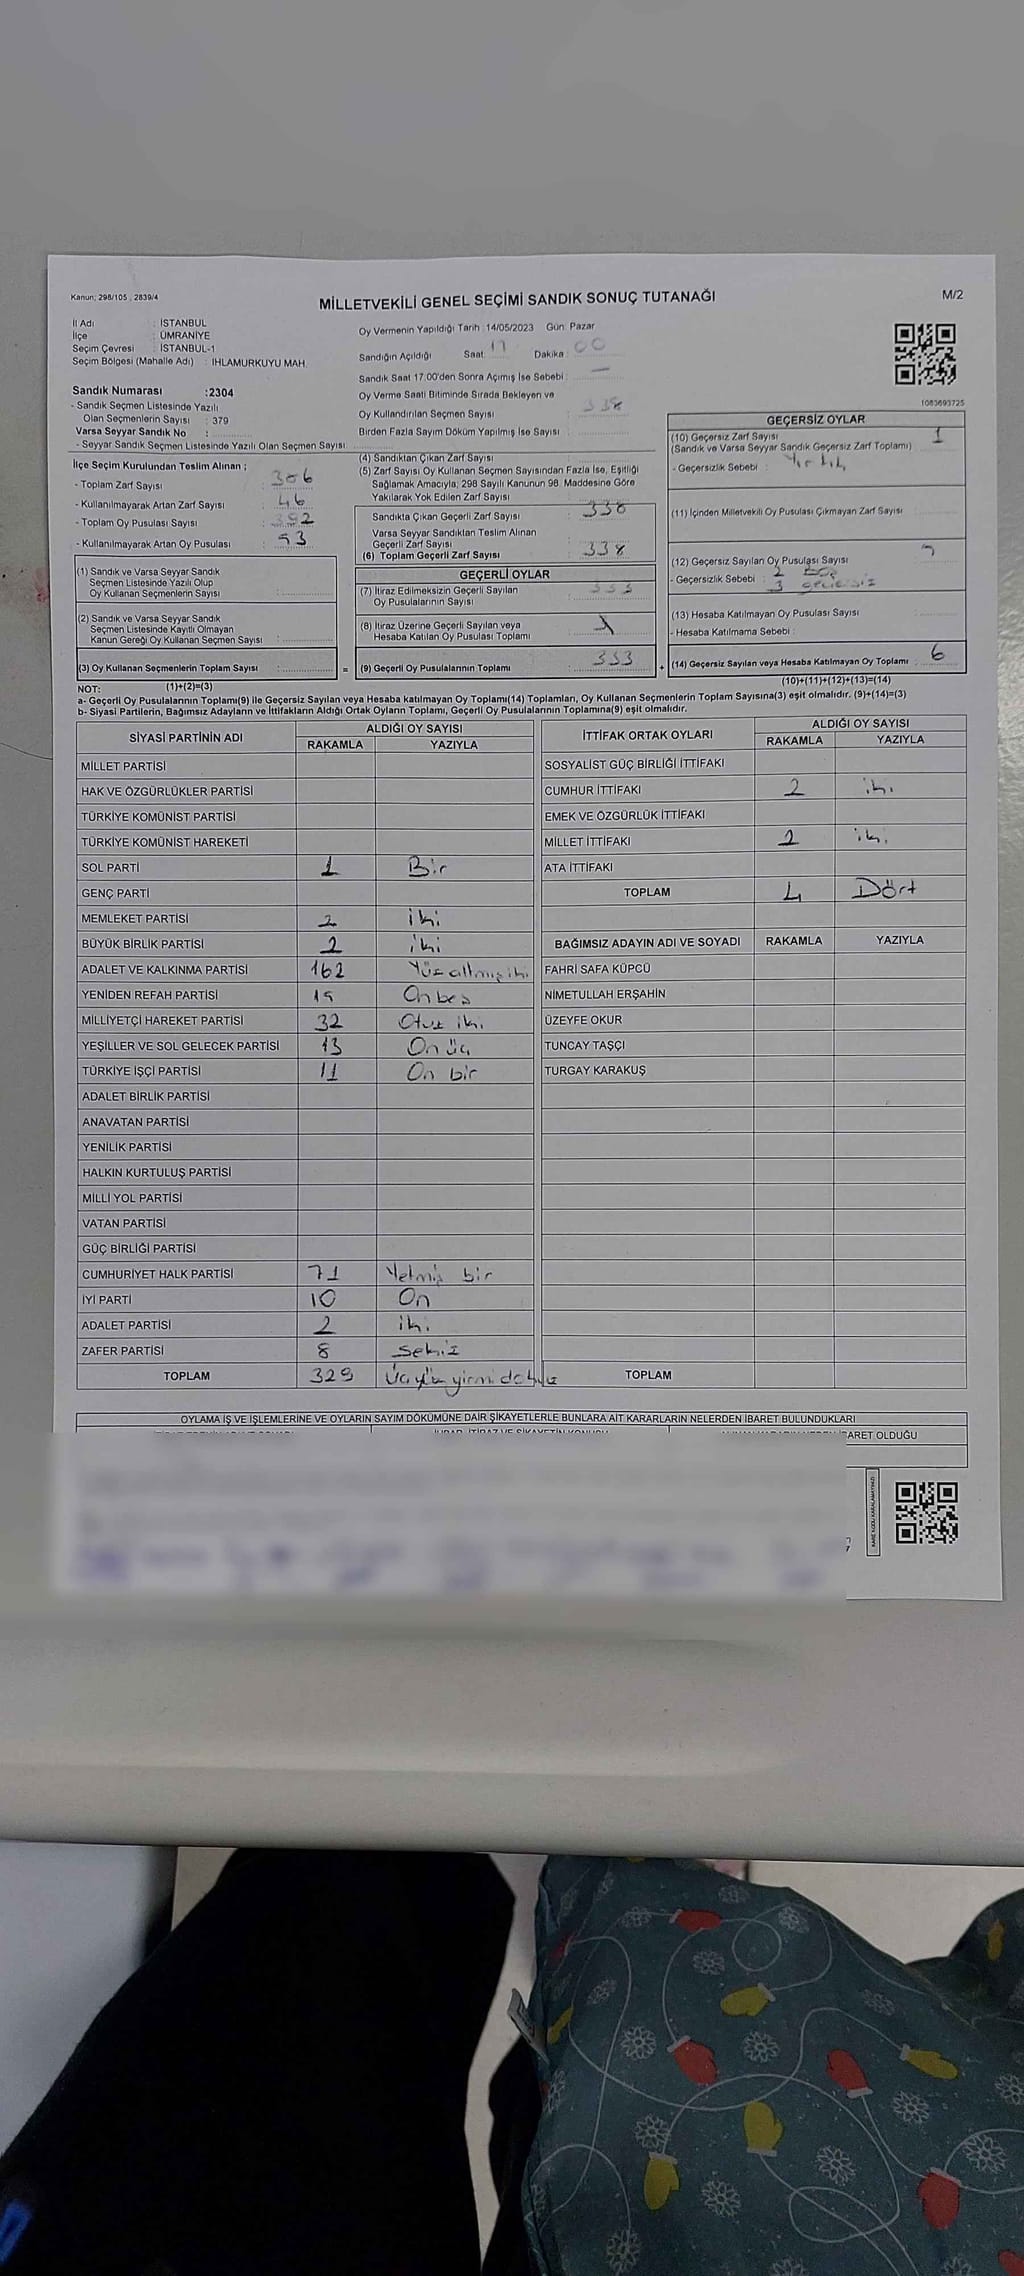 Kanun; 298/105 , 2839/4
MİLLETVEKİLİ GENEL SEÇİMİ SANDIK SONUÇ TUTANAĞI
M/2
İl Adı : İSTANBUL
İlçe : ÜMRANİYE
Seçim Çevresi : İSTANBUL-1
Seçim Bölgesi (Mahalle Adı) : IHLAMURKUYU MAH.
Sandık Numarası :2304
- Sandık Seçmen Listesinde Yazılı
Olan Seçmenlerin Sayısı : 379
Varsa Seyyar Sandık No :
- Seyyar Sandık Seçmen Listesinde Yazılı Olan Seçmen Sayısı:
Oy Vermenin Yapıldığı Tarih : 14/05/2023 Gün: Pazar
Sandığın Açıldığı Saat: 17 Dakika : 00
Sandık Saat 17.00'den Sonra Açımış İse Sebebi : —
Oy Verme Saati Bitiminde Sırada Bekleyen ve
Oy Kullandırılan Seçmen Sayısı : 338
Birden Fazla Sayım Döküm Yapılmış İse Sayısı :
1063693725
İlçe Seçim Kurulundan Teslim Alınan ;
- Toplam Zarf Sayısı :
- Kullanılmayarak Artan Zarf Sayısı : 46
- Toplam Oy Pusulası Sayısı : 392
- Kullanılmayarak Artan Oy Pusulası : 53
(1) Sandık ve Varsa Seyyar Sandık
Seçmen Listesinde Yazılı Olup
Oy Kullanan Seçmenlerin Sayısı :
(2) Sandık ve Varsa Seyyar Sandık
Seçmen Listesinde Kayıtlı Olmayan
Kanun Gereği Oy Kullanan Seçmen Sayısı :
(3) Oy Kullanan Seçmenlerin Toplam Sayısı : =
(4) Sandıktan Çıkan Zarf Sayısı :
(5) Zarf Sayısı Oy Kullanan Seçmen Sayısından Fazla İse, Eşitliği
Sağlamak Amacıyla; 298 Sayılı Kanunun 98. Maddesine Göre
Yakılarak Yok Edilen Zarf Sayısı :
Sandıkta Çıkan Geçerli Zarf Sayısı : 338
Varsa Seyyar Sandıktan Teslim Alınan
Geçerli Zarf Sayısı :
(6) Toplam Geçerli Zarf Sayısı : 338
GEÇERLİ OYLAR
(7) İtiraz Edilmeksizin Geçerli Sayılan : 333
Oy Pusulalarının Sayısı
(8) İtiraz Üzerine Geçerli Sayılan veya :
Hesaba Katılan Oy Pusulası Toplamı
(9) Geçerli Oy Pusulalarının Toplamı : 333 +
GEÇERSİZ OYLAR
(10) Geçersiz Zarf Sayısı : 1
(Sandık ve Varsa Seyyar Sandık Geçersiz Zarf Toplamı)
- Geçersizlik Sebebi : Yırtık
(11) İçinden Milletvekili Oy Pusulası Çıkmayan Zarf Sayısı :
(12) Geçersiz Sayılan Oy Pusulası Sayısı :
- Geçersizlik Sebebi : 2 boş
3 geçersiz
(13) Hesaba Katılmayan Oy Pusulası Sayısı :
- Hesaba Katılmama Sebebi :
(14) Geçersiz Sayılan veya Hesaba Katılmayan Oy Toplamı : 6
(10)+(11)+(12)+(13)=(14)
NOT: (1)+(2)=(3)
a- Geçerli Oy Pusulalarının Toplamı(9) ile Geçersiz Sayılan veya Hesaba katılmayan Oy Toplamı(14) Toplamları, Oy Kullanan Seçmenlerin Toplam Sayısına(3) eşit olmalıdır. (9)+(14)=(3)
b- Siyasi Partilerin, Bağımsız Adayların ve İttifakların Aldığı Ortak Oyların Toplamı, Geçerli Oy Pusulalarının Toplamına(9) eşit olmalıdır.
SİYASİ PARTİNİN ADI ALDIĞI OY SAYISI
RAKAMLA YAZIYLA
MİLLET PARTİSİ
HAK VE ÖZGÜRLÜKLER PARTİSİ
TÜRKİYE KOMÜNİST PARTİSİ
TÜRKİYE KOMÜNİST HAREKETİ
SOL PARTİ 1 Bir
GENÇ PARTİ
MEMLEKET PARTİSİ 2 iki
BÜYÜK BİRLİK PARTİSİ 2 iki
ADALET VE KALKINMA PARTİSİ 162 Yüz altmış iki
YENİDEN REFAH PARTİSİ 15 On beş
MİLLİYETÇİ HAREKET PARTİSİ 32 Otuz iki
YEŞİLLER VE SOL GELECEK PARTİSİ 13 On üç
TÜRKİYE İŞÇİ PARTİSİ 11 On bir
ADALET BİRLİK PARTİSİ
ANAVATAN PARTİSİ
YENİLİK PARTİSİ
HALKIN KURTULUŞ PARTİSİ
MİLLİ YOL PARTİSİ
VATAN PARTİSİ
GÜÇ BİRLİĞİ PARTİSİ
CUMHURİYET HALK PARTİSİ 71 Yetmiş bir
İYİ PARTİ 10 On
ADALET PARTİSİ 2 iki
ZAFER PARTİSİ 8 sekiz
TOPLAM 329 Üçyüz yirmi dokuz
İTTİFAK ORTAK OYLARI ALDIĞI OY SAYISI
RAKAMLA YAZIYLA
SOSYALİST GÜÇ BİRLİĞİ İTTİFAKI
CUMHUR İTTİFAKI 2 iki
EMEK VE ÖZGÜRLÜK İTTİFAKI
MİLLET İTTİFAKI 2 iki
ATA İTTİFAKI
TOPLAM 4 Dört
BAĞIMSIZ ADAYIN ADI VE SOYADI RAKAMLA YAZIYLA
FAHRİ SAFA KÜPCÜ
NİMETULLAH ERŞAHİN
ÜZEYFE OKUR
TUNCAY TAŞÇI
TURGAY KARAKUŞ
TOPLAM
OYLAMA İŞ VE İŞLEMLERİNE VE OYLARIN SAYIM DÖKÜMÜNE DAİR ŞİKAYETLERLE BUNLARA AİT KARARLARIN NELERDEN İBARET BULUNDUKLARI
İBARET OLDUĞU